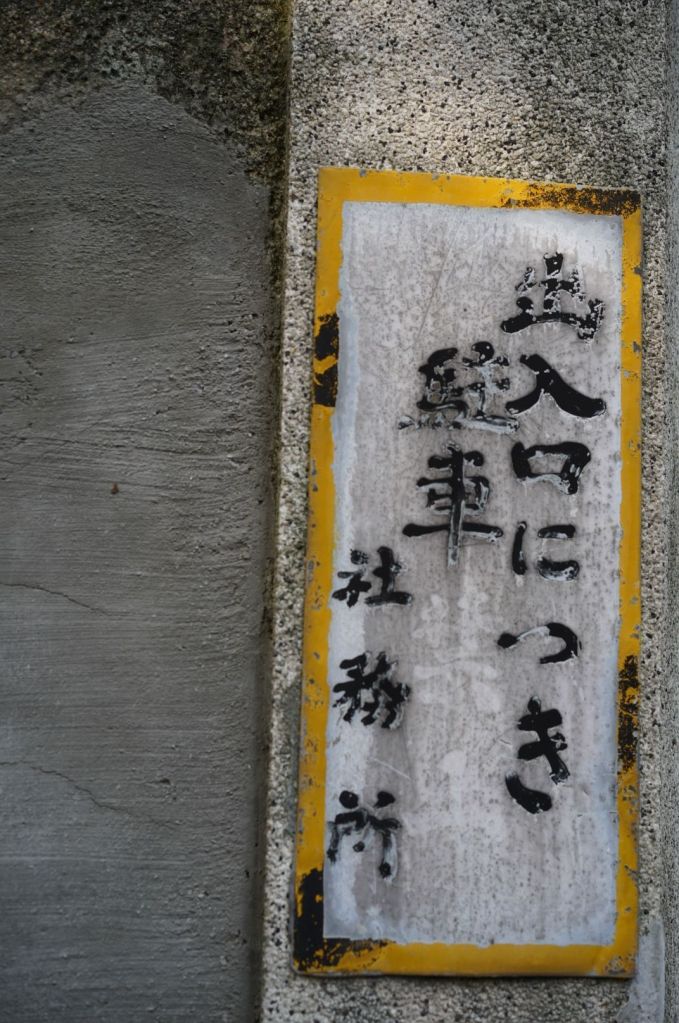 出入口につき
駐車
社務所